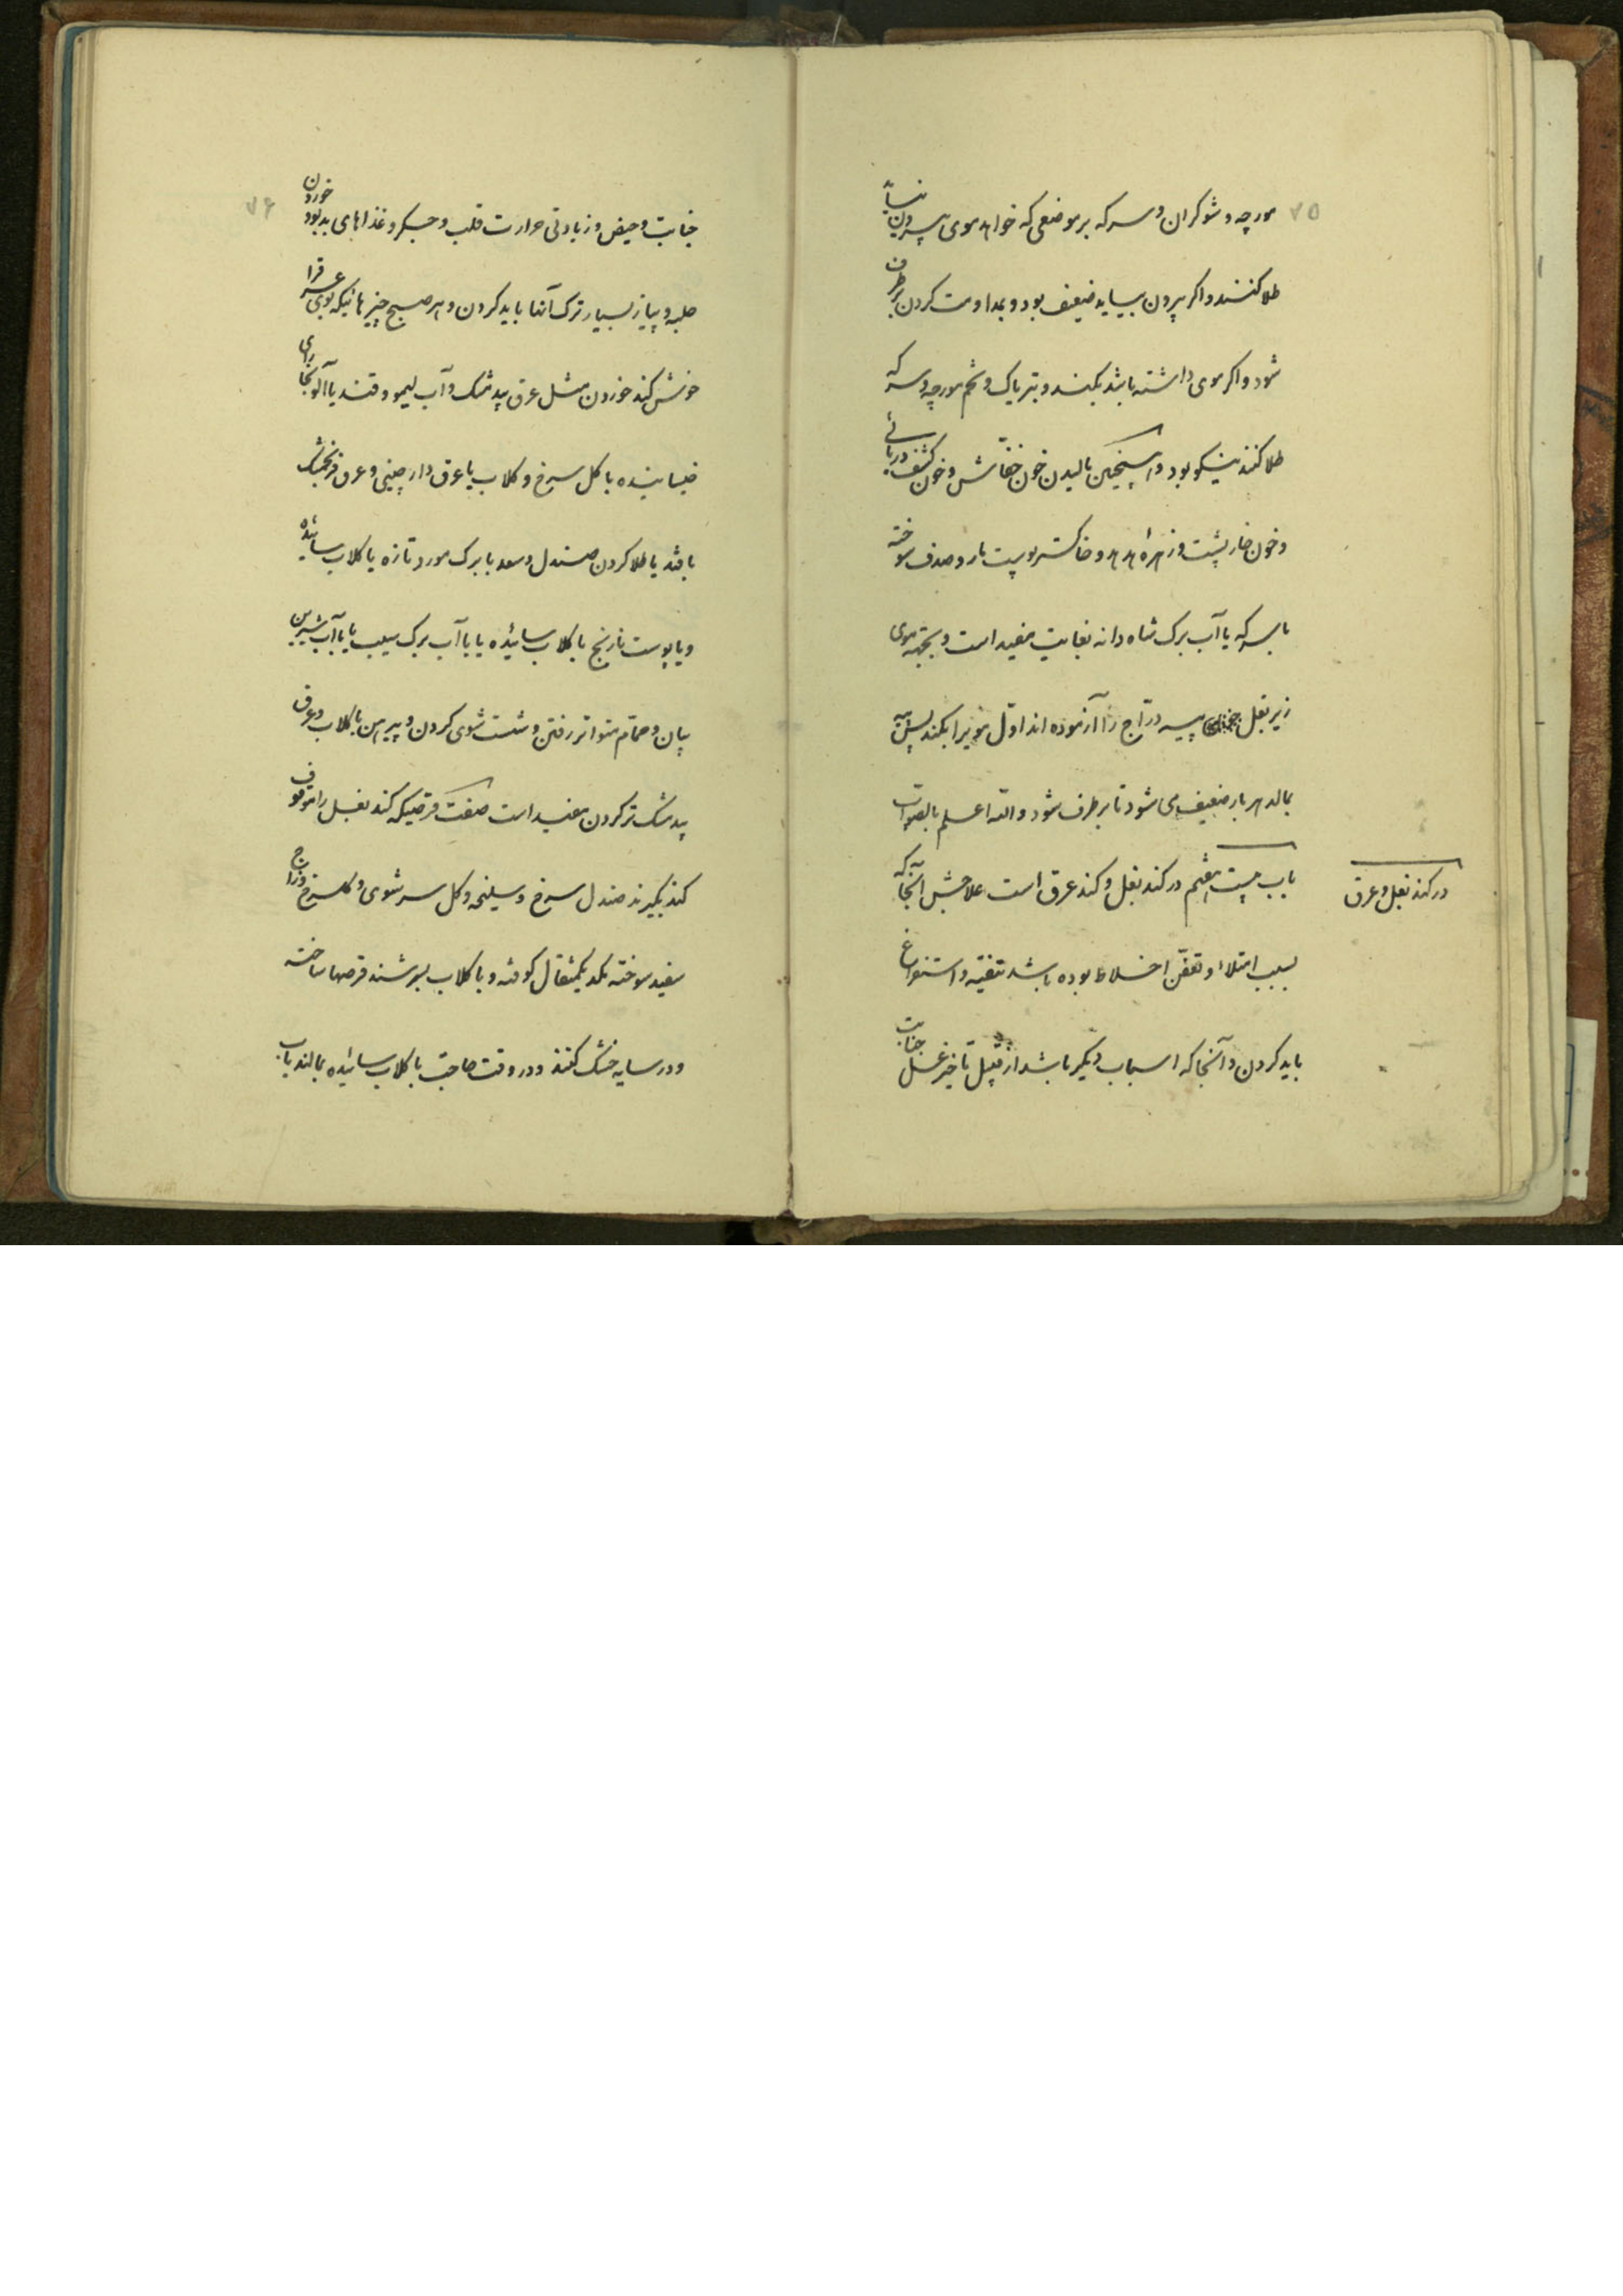 ۷۵
مورچه و شوکران و سرکه بر موضعی که خواهد موی بیرون نیاید
طلا کنند و اگر بیرون بیاید ضعیف بود و بمداومت کردن برطرف
شود و اگر موی داشته باشد بکنند و بتریاک و تخم مورچه و سرکه
طلا کنند نیکو بود و همچنین مالیدن خون خفّاش و خون کشف دریائی
و خون خارپشت و زهرهٔ هدهد و خاکستر پوست مار و صدف سوخته
با سرکه یا آب برک شاه دانه بغایت مفید است و بجهة موی
زیر بغل پیه درّاج را آزموده اند اوّل مو را بکنند پس پیه
بمالد هر بار ضعیف می شود تا برطرف شود واللّه اعلم بالصواب
در کند بغل و عرق
باب بیست هفتم در کند بغل و کند عرق است علاجش آنجا که
بسبب امتلاء و تعفّن اخلاط بوده باشد تنقیه و استفراغ
باید کردن و آنجا که اسباب دیگر باشد از قبیل تأخیر غسل جنابت
۷۶
جنابت و حیض و زیادتی حرارت قلب و جسگر و غذاهای بدبود خوردن
حلبه و پیاز بسیار ترک آنها باید کردن و هر صبح چیزهائیکه بوی عرق را
خوش کند خوردن مثل عرق بیدمشک و آب لیمو و قند یا آلو بخارای
خیسانیده با کل سرخ و کلاب یا عرق دارچینی و عرق فرنجمشک
باشد یا طلا کردن صندل و سعد با برک مورد تازه با کلاب سائیده
و یا پوست نارنج با کلاب سائیده یا با آب برک سیب یا با آب شیرین
بیان و حمّام متواتر رفتن و شست شوی کردن و پیرهن با کلاب و عرق
بیدمشک تر کردن مفید است صفت قرصیکه کند بغل را موقوف
کند بگیرند صندل سرخ و سلیخه و کل سرشوی و کل سرخ و زاج
سفید سوخته هر یک یکمثقال کوفته و با کلاب بسرشند قرصها ساخته
و در سایه خشک کنند و در وقت حاجت با کلاب سائیده بمالند باب